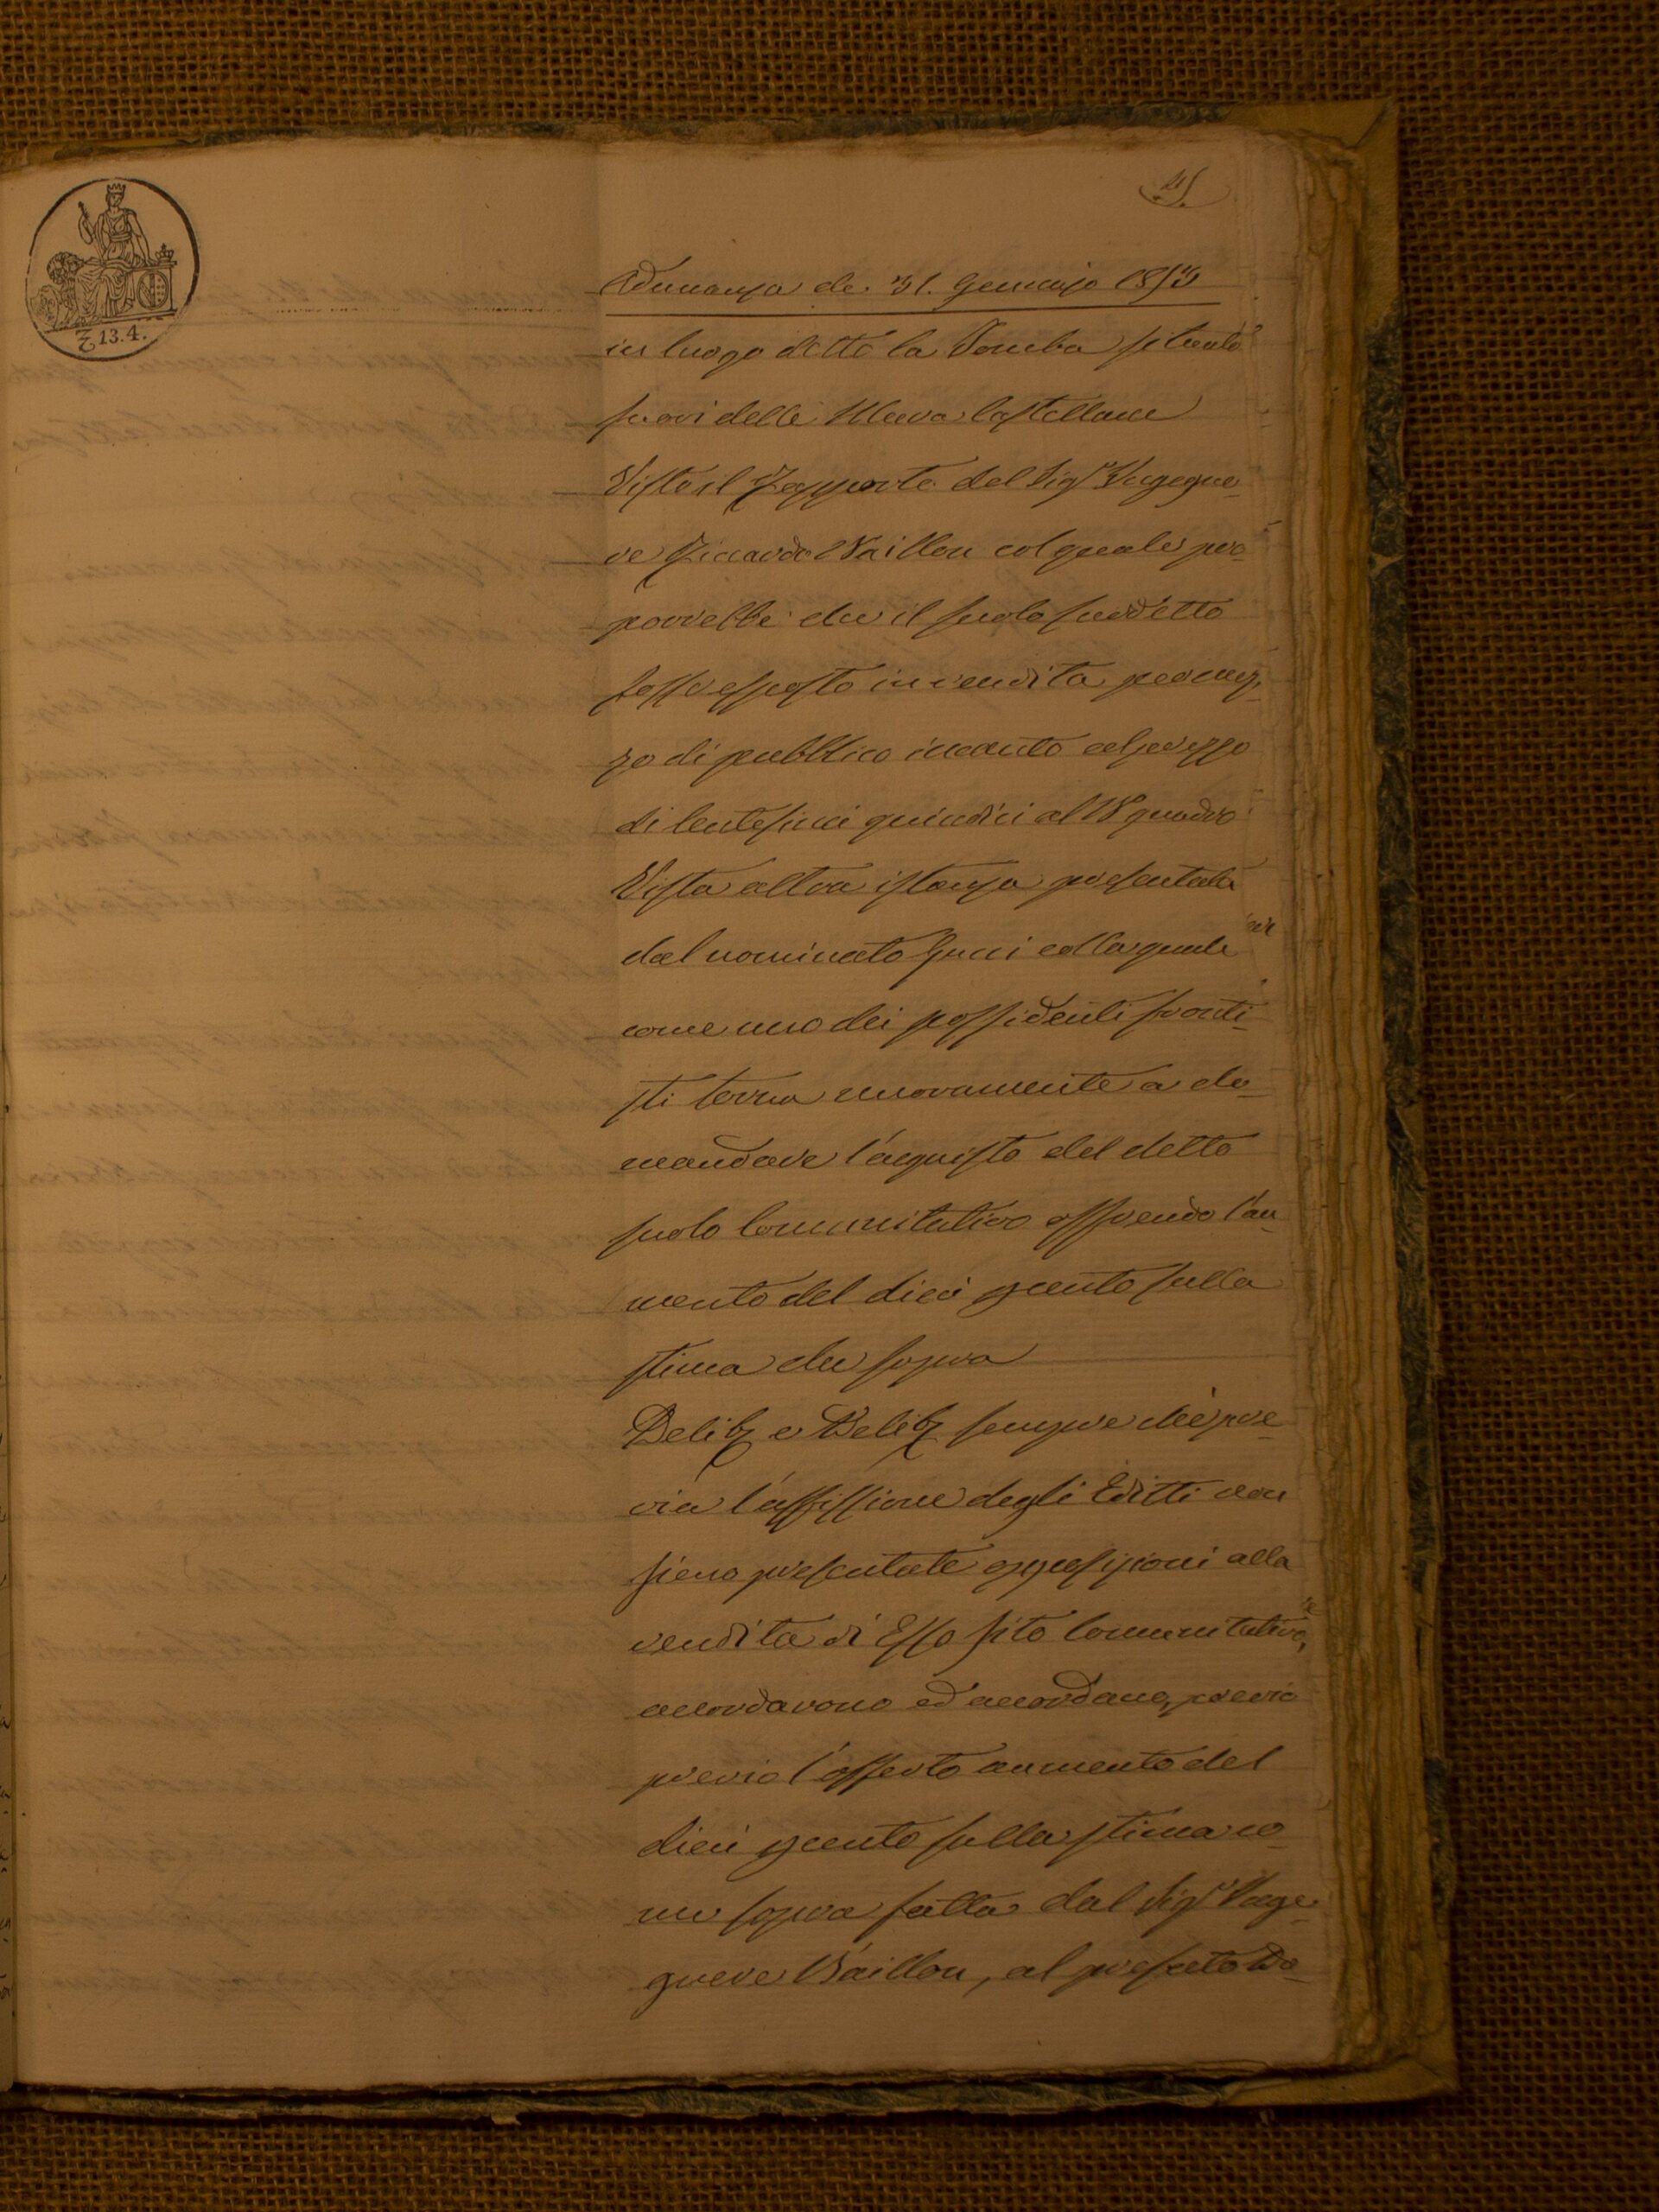 45.
Adunanza de. 31. Gennajo 1853
₹ 13.4.
in luogo detto la Tomba situato
fuori delle Mura Castellane
Visto il Rapporto del Sigr Ingegne-
re Riccardo Vaillon col quale pro-
porrebbe che il suolo suddetto
fosse esposto in vendita per mez-
zo di pubblico incanto al prezzo
di Centesimi quindici al B quadro
Vista altra istanza presentata
dal nominato Gucci colla quale
come uno dei possidenti fronti-
sti torna nuovamente a do-
mandare l'acquisto del detto
suolo Comunitativo offrendo l'au-
mento del dieci pcento sulla
stima che sopra
Delibo e Delibo sempre chè pre-
via l'affissione degli Editti non
sieno presentate opposizioni alla
vendita di Esso sito Comunitativo,
accordarono ed accordano, previo
previo l'offerto aumento del
dieci pcento sulla stima co-
me sopra fatta dal Sigr Inge-
gnere Vaillon, al prefato Do-